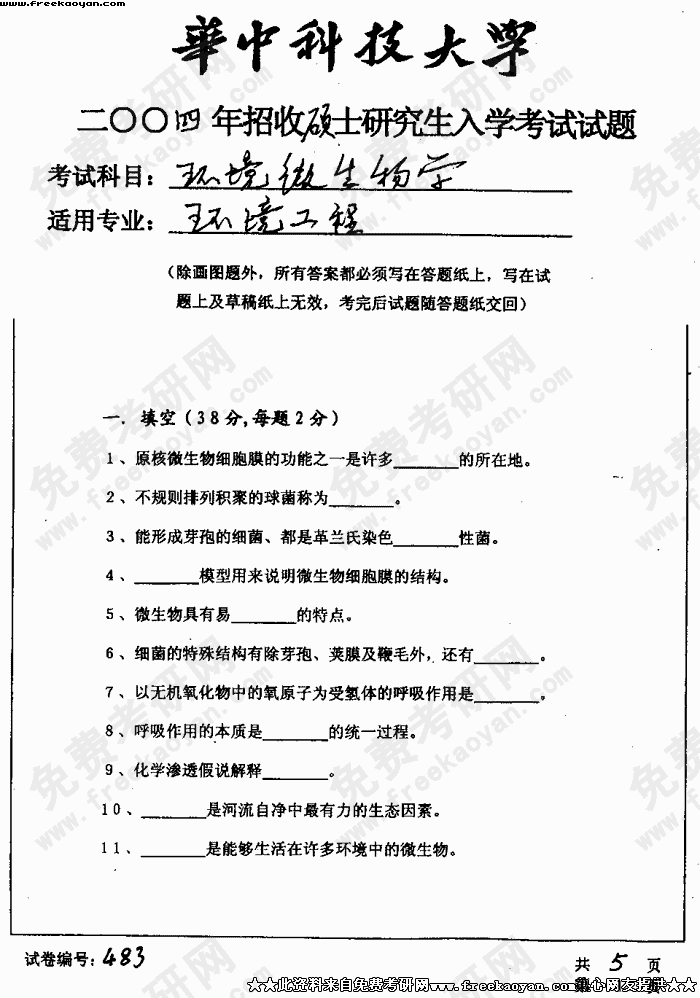 www.freekaoyan.com
華中科技大学
二〇〇四年招收硕士研究生入学考试试题
考试科目：环境微生物学
适用专业：环境工程
（除画图题外，所有答案都必须写在答题纸上，写在试
题上及草稿纸上无效，考完后试题随答题纸交回）
一．填空（38分，每题2分）
1、原核微生物细胞膜的功能之一是许多______的所在地。
2、不规则排列积聚的球菌称为______。
3、能形成芽孢的细菌、都是革兰氏染色______性菌。
4、______模型用来说明微生物细胞膜的结构。
5、微生物具有易______的特点。
6、细菌的特殊结构有除芽孢、荚膜及鞭毛外，还有______。
7、以无机氧化物中的氧原子为受氢体的呼吸作用是______。
8、呼吸作用的本质是______的统一过程。
9、化学渗透假说解释______。
10、______是河流自净中最有力的生态因素。
11、______是能够生活在许多环境中的微生物。
试卷编号：483
共 5 页
★★此资料来自免费考研网www.freekaoyan.com热心网友提供★★
免费考研网
www.freekaoyan.com